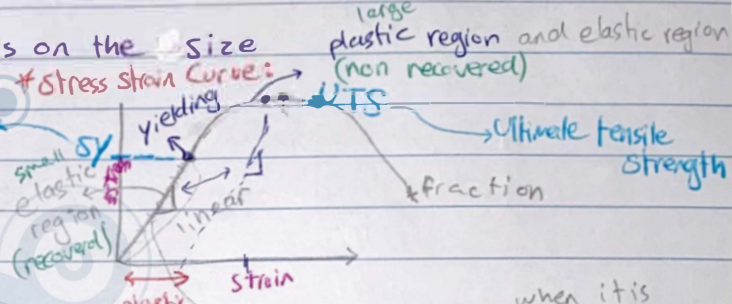 large
s on the size
plastic region and elastic region
(non recovered)
*Stress Strain Curve:
yielding
UTS
Ultimate tensile
strength
Sy
small
elastic
region
(recoverd)
linear
fraction
Strain
when it is